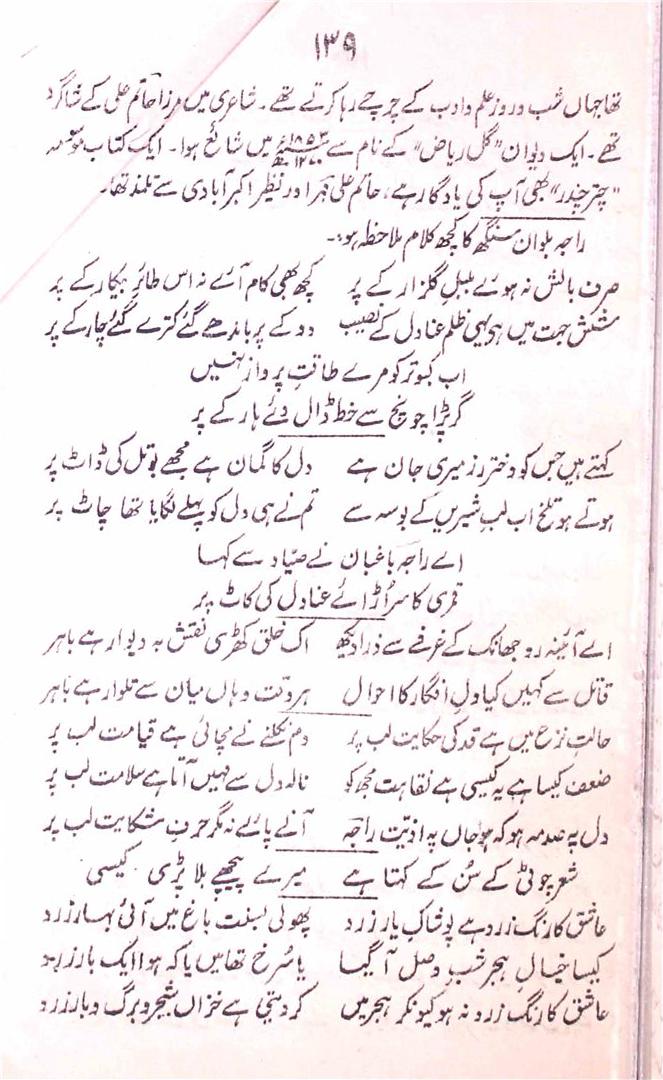 ۱۳۹
تھا جہاں شب و روز علم و ادب کے چرچے رہا کرتے تھے۔ شاعری میں مرزا حاتم علی کے شاگرد
تھے۔ ایک دیوان "گل ریاض" کے نام سے ۱۸۵۳ء ۱۲۷۰ھ میں شائع ہوا۔ ایک کتاب موسومہ
"چتر چندر" بھی آپ کی یادگار ہے، حاتم علی مہر اور نظیر اکبرآبادی سے تلمذ تھا۔
راجہ بلوان سنگھ کا کچھ کلام ملاحظہ ہو:۔
صرف بالش نہ ہوئے بلبلِ گلزار کے پر کچھ بھی کام آئے نہ اس طائرِ بیکار کے پر
شش جہت میں ہی یہی ظلم عنادل کے نصیب دو کے پر باندھے گئے کترے گئے چار کے پر
اب کبوتر کو مرے طاقتِ پرواز نہیں
گر پڑا چونچ سے خط ڈال دئے ہار کے پر
کہتے ہیں جس کو دخترِ رز میری جان ہے دل کا گمان ہے مجھے بوتل کی ڈاٹ پر
ہوتے ہو تلخ اب لبِ شیریں کے بوسہ سے تم نے ہی دل کو پہلے لگایا تھا چاٹ پر
اے راجہ باغبان نے صیّاد سے کہا
قمری کا سر اُڑائے عنادل کی کاٹ پر
اے آئینہ رو جھانک کے غرفے سے ذرا دیکھ اک خلق کھڑی نقش بہ دیوار ہے باہر
قاتل سے کہیں کیا دلِ افگار کا احوال ہر وقت وہاں میان سے تلوار ہے باہر
حالتِ نزع میں ہے قد کی حکایت لب پر دم نکلنے نے مچائی ہے قیامت لب پر
ضعف کیسا ہے یہ کیسی ہے نقاہت مجھ کو نالہ دل سے نہیں آتا ہے سلامت لب پر
دل پہ صدمہ ہو کہ ہو جاں پہ اذیّت راجہ آنے پائے نہ مگر حرفِ شکایت لب پر
شعر چوٹی کے سُن کے کہتا ہے میرے پیچھے بلا پڑی کیسی
عاشق کا رنگ زرد ہے پوشاکِ یار زرد پھولی بسنت باغ میں آئی بہار زرد
کیسا خیالِ ہجر شبِ وصل آ گیا یا سُرخ تھا میں یا کہ ہوا ایک بار زرد
عاشق کا رنگ زرد نہ ہو کیونکر ہجر میں کر دیتی ہے خزاں شجر و برگ و بار زرد